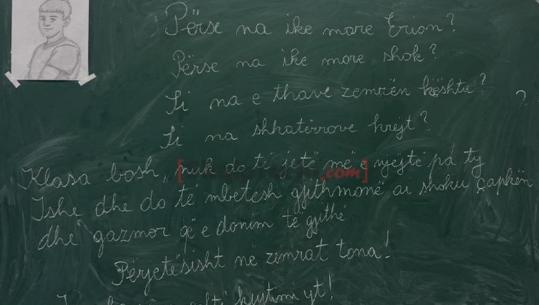 Përse na ike more Erion?
Përse na ike more shok?
Si na e thave zemrën kështu?
?
Si na shkatërrove krejt?
Klasa bosh, nuk do të jetë më e njejtë pa ty
Ishe dhe do të mbetesh gjithmonë ai shoku çapkën
dhe gazmor që e donim të gjithë
Përjetësisht në zemrat tona!